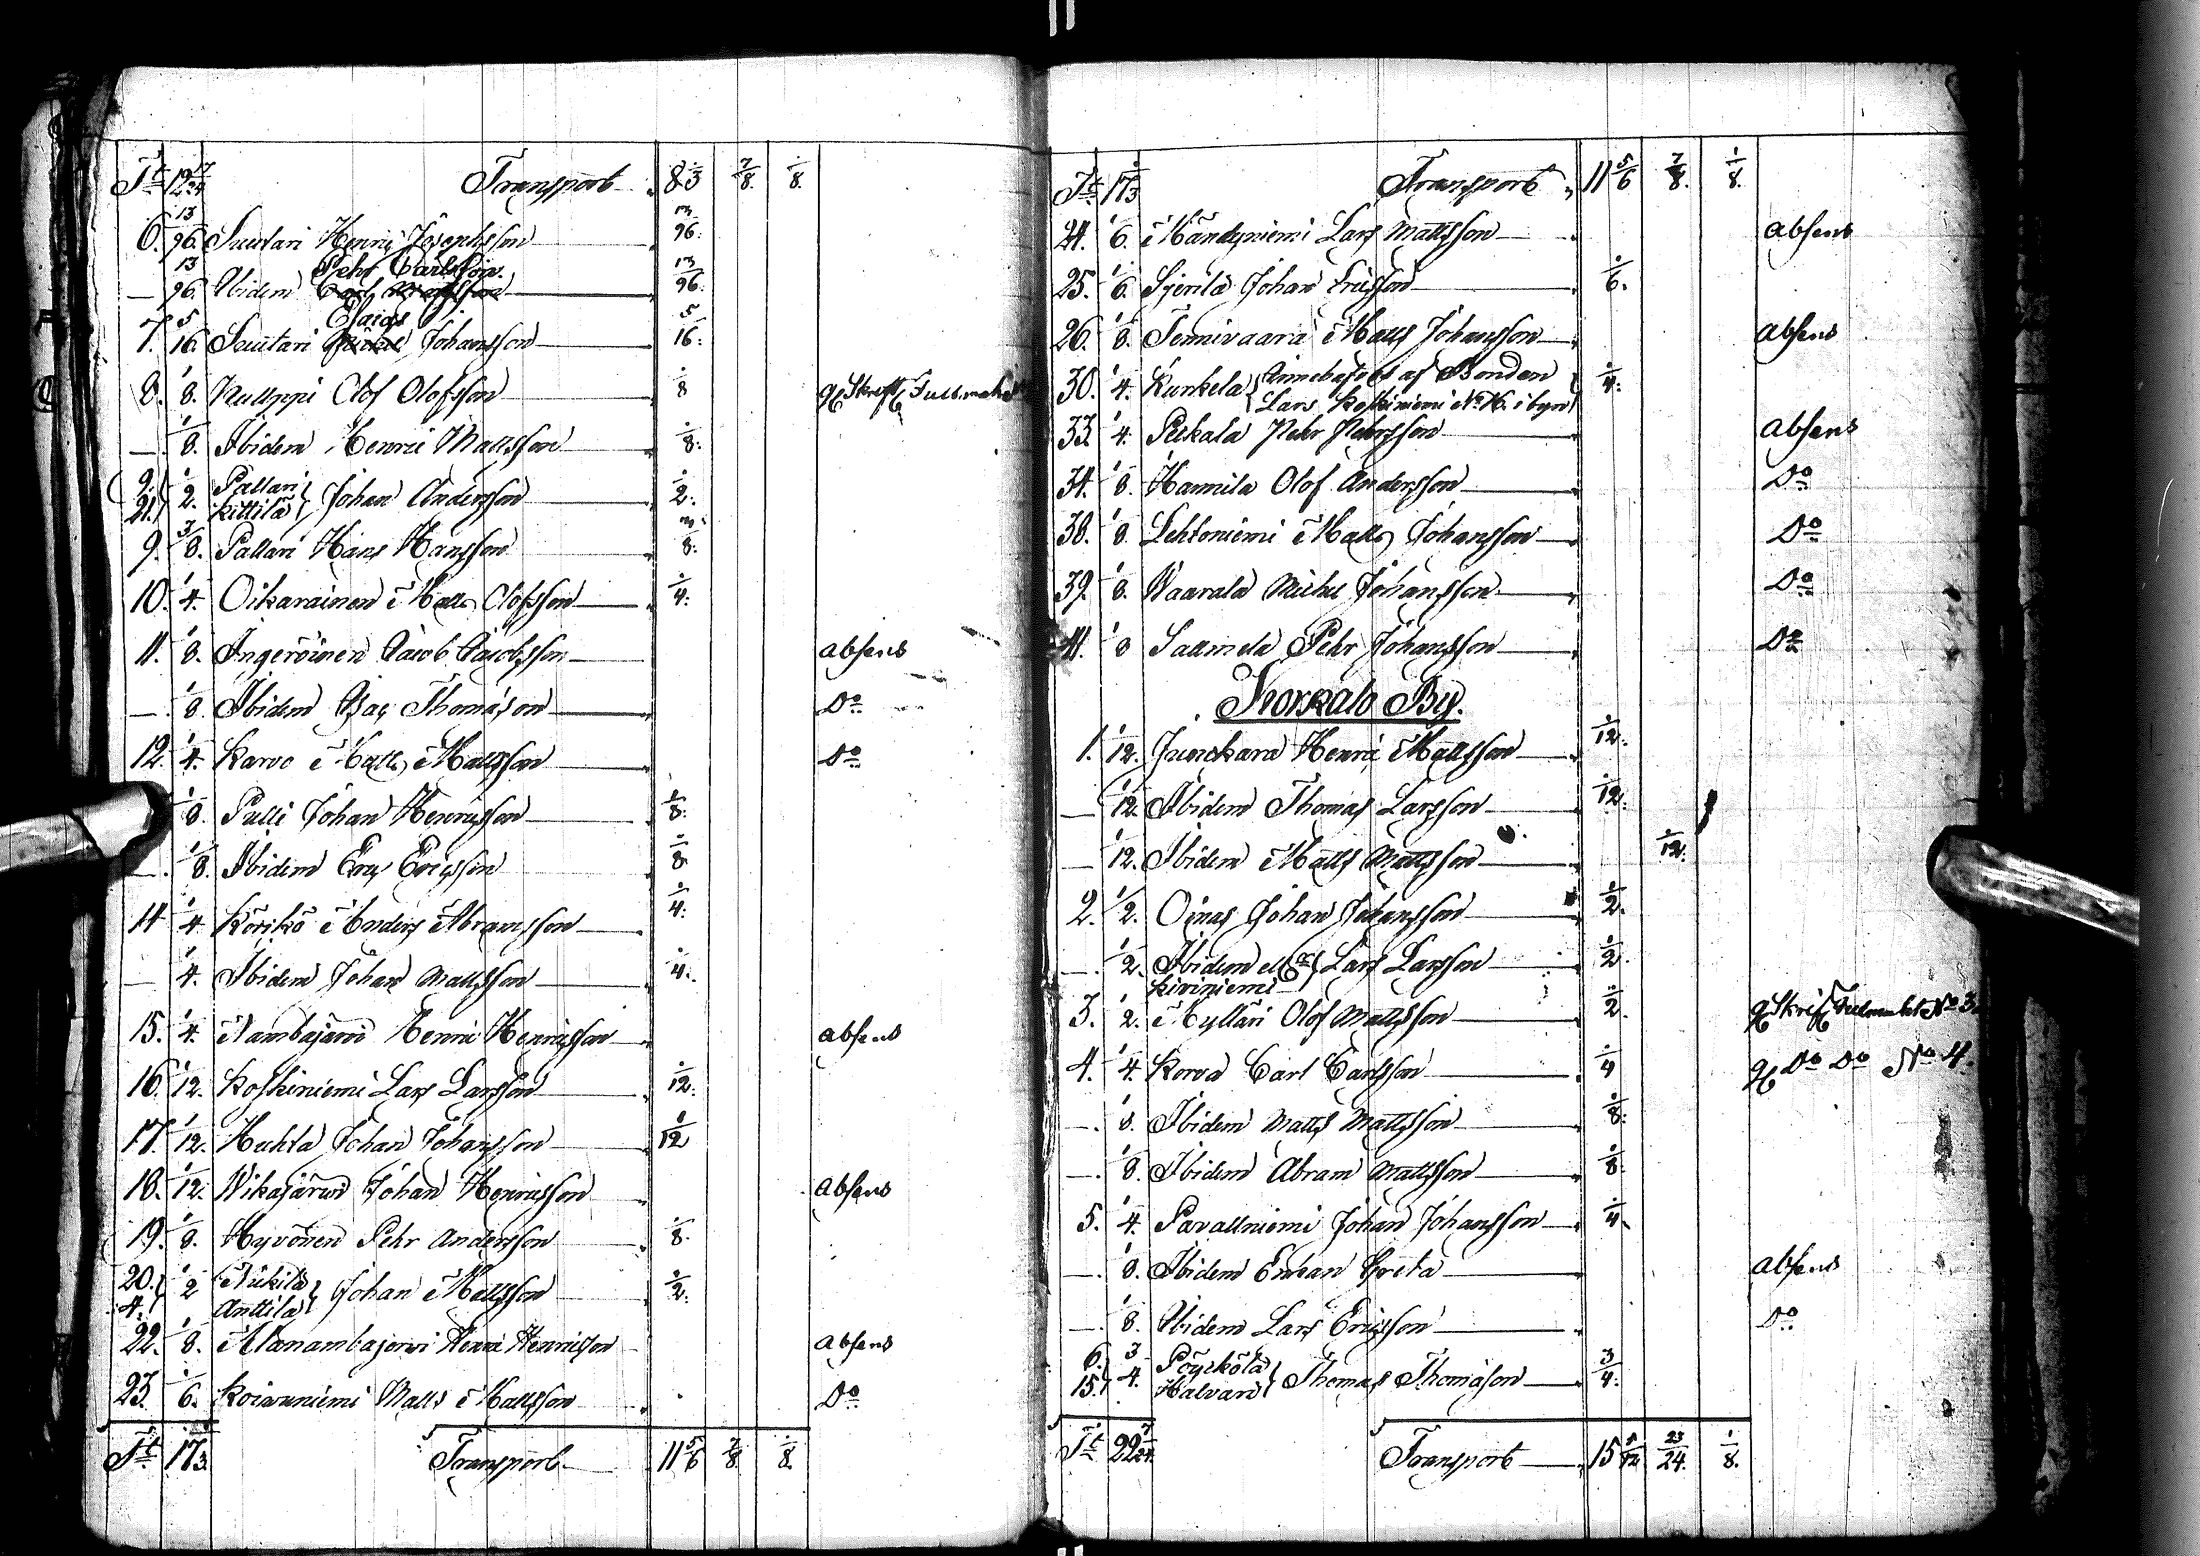 Tt 12 17/24 Transport 8 1/3 7/8. 1/8.
6. 13/96. Suutari Henric Josephsson 13/96.
Pehr Carlsson
— 13/96. Ibidem 13/96.
Esaias
7. 5/16. Suutari Johansson 5/16.
8. 1/8. Kulppi Olof Olofsson 1/8 Skriftl Fullmakt
— 1/8. Ibidem Henric Mattsson 1/8.
9. 21. 1/2. Pallari Kittilä Johan Andersson 1/2.
9. 3/8. Pallari Hans Hansson 3/8.
10. 1/4. Oikarainen Matts Olofsson 1/4.
11. 1/8. Ingeröinen Jacob Jacobsson absens
— 1/8. Ibidem Isac Thomasson Do
12. 1/4. Karvo Matts Mattsson Do
1/8. Pulli Johan Henricsson 1/8.
— 1/8. Ibidem Eric Ericsson 1/8
14 1/4 Körikö Anders Abramsson 1/4.
— 1/4. Ibidem Johan Mattsson 1/4.
15. 1/4. Nambajärvi Henric Henricsson absens
16. 1/12. Koskiniemi Lars Larsson 1/12.
17. 1/12. Huhta Johan Johansson 1/12
18. 1/12. Wikajärvi Johan Henricsson absens
19. 1/8. Hyvönen Pehr Andersson 1/8.
20. 4. 1/2 Niikila Anttila Johan Mattsson 1/2.
22. 1/8. Alanambajervi Henric Henricsson absens
23. 1/6. Koivuniemi Matts Mattsson Do
Tt 17 1/3 Transport 11 5/6 7/8 1/8.
Tt 17 1/3 Transport 11 5/6 7/8. 1/8.
24. 1/6. Mändyniemi Lars Mattsson absens
25. 1/6. Sjerilä Johan Ericsson 1/6.
26. 1/8. Tennivaara Matts Johansson absens
30. 1/4. Kunkela Innehafves af Bonden 1/4.
Lars Koskiniemi No 16. i byn
33. 1/4. Pekkala Pehr Pehrsson absens
34. 1/8. Hannila Olof Andersson Do
38. 1/8. Lehtoniemi Matts Johansson Do
39. 1/8. Waarala Michel Johansson Do
41. 1/8 Salmela Pehr Johansson Do
Korkalo By.
1. 1/12. Junskara Henric Mattsson 1/12.
— 1/12. Ibidem Thomas Larsson 1/12.
— 1/12. Ibidem Matts Mattsson 1/12.
2. 1/2. Oinas Johan Johansson 1/2.
— 1/2. Ibidem Lars Larsson 1/2.
Kiviniemi
3. 1/2. Myllari Olof Mattsson 1/2. Skriftl Fullmakt No 3.
4. 1/4. Korva Carl Carlsson 1/4 Do Do No 4.
— 1/8. Ibidem Matts Mattsson 1/8.
— 1/8. Ibidem Abram Mattsson 1/8.
5. 1/4. Pavallniemi Johan Johansson 1/4
— 1/8. Ibidem Enkan Greta absens
— 1/8. Ibidem Lars Ericsson Do
6. 15. 3/4. Pöyckölä Halvari Thomas Thomasson 3/4.
Tt 22 7/24. Transport 15 5/12 23/24. 1/8.